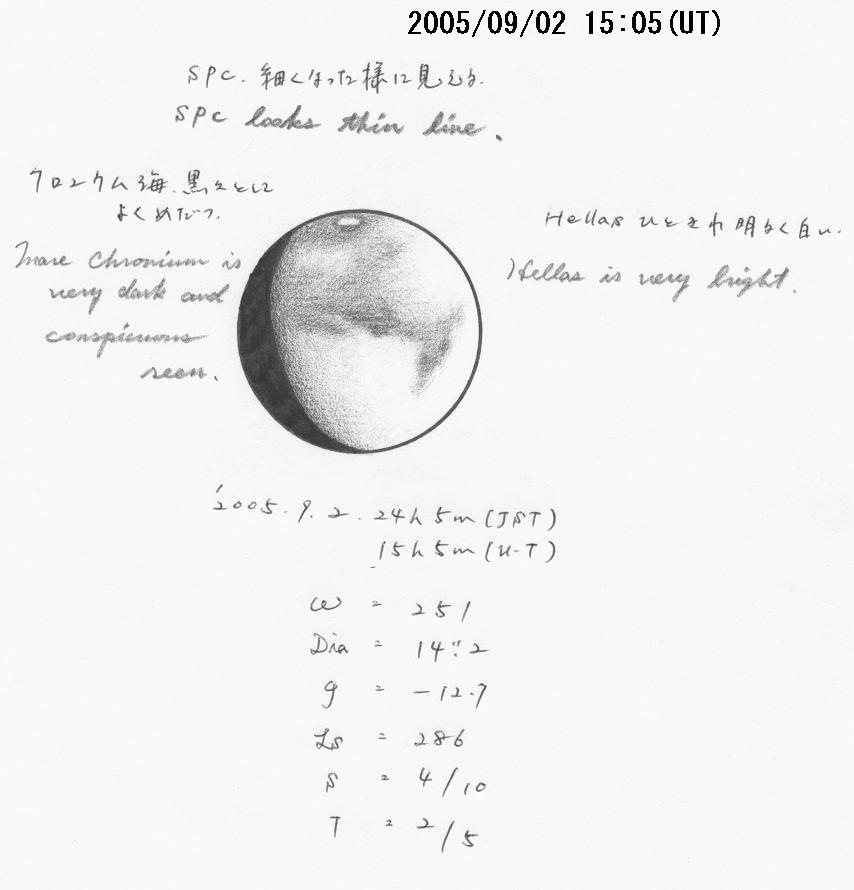 2005/09/02 15:05(UT)
SPC. 細くなった様に見える.
SPC looks thin line.
クロニウム海.黒々として
よくめだつ.
Mare Chronium is
very dark and
conspicuous
seen.
Hellas ひときわ明るく白い.
Hellas is very bright.
'2005.9.2. 24h 5m (JST)
15h 5m (U.T)
ω = 251
Dia = 14".2
φ = -12.7
Ls = 286
S = 4/10
T = 2/5